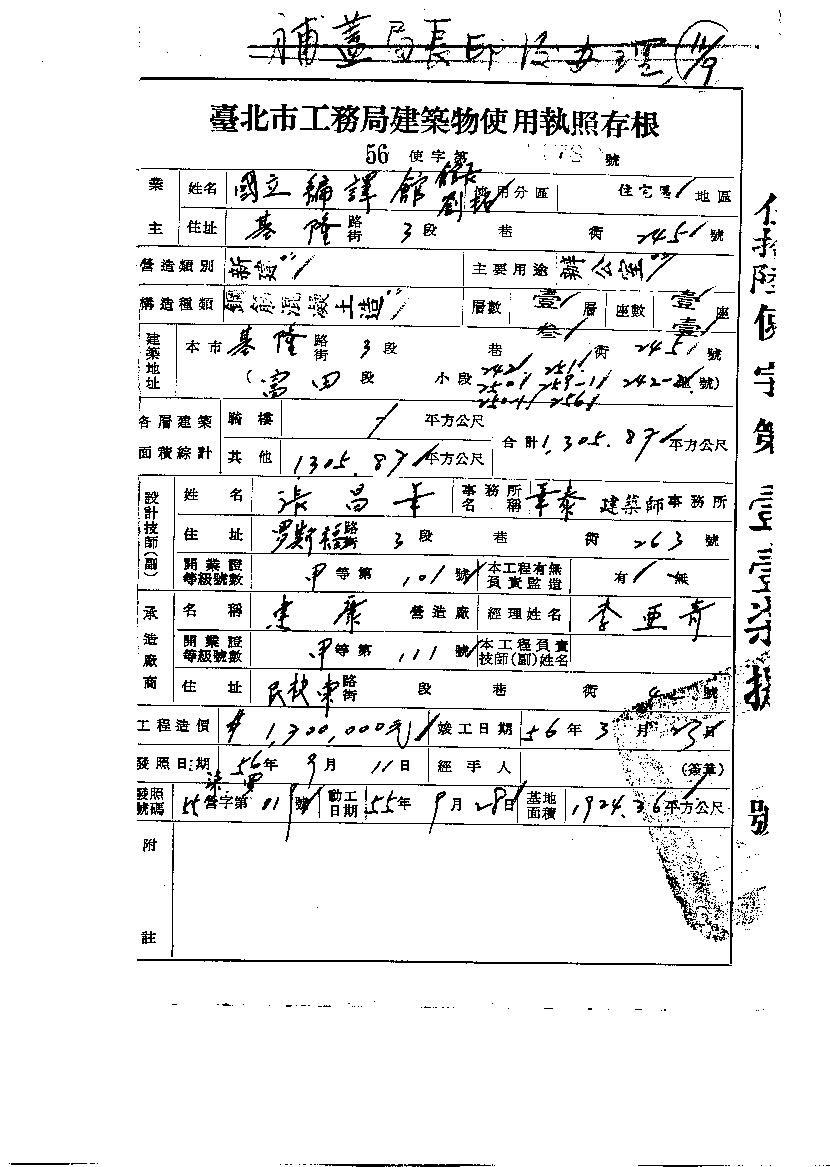 補蓋局長印後办理 11/9
臺北市工務局建築物使用執照存根
56 使字第 號
業主 姓名 國立編譯館 館長 劉 使用分區 住宅區 地區
住址 基隆 路街 3 段 巷 街 245 號
營造類別 新建 主要用途 辦公室
構造種類 鋼筋混凝土造 層數 壹 層 座數 壹 座
叁 壹
建築地址 本市 基隆 路街 3 段 巷 街 245 號
(富田 段 小段 242 251 250-1 259-11 242-2 號)
250-11 256
各層建築面積綜計 騎樓 / 平方公尺 合計 1,305.87 平方公尺
其他 1305.87 平方公尺
設計技師(副) 姓名 張昌華 事務所名稱 華泰 建築師事務所
住址 罗斯福 路街 3 段 巷 街 263 號
開業證等級號數 甲等第 101 號 本工程有無負責監造 有 無
承造廠商 名稱 建廳 營造廠 經理姓名 李亜奇
開業證等級號數 甲等第 111 號 本工程負責技師(副)姓名
住址 民权東 路街 段 巷 街 4 號
工程造價 $1,300,000元 竣工日期 56年3月23日
發照日期 56年9月11日 經手人 (簽章)
發照號碼 55 營字第 019 號 動工日期 55年9月28日 基地面積 1924.36 平方公尺
附註
伍拾陸使字第壹壹柒撗號